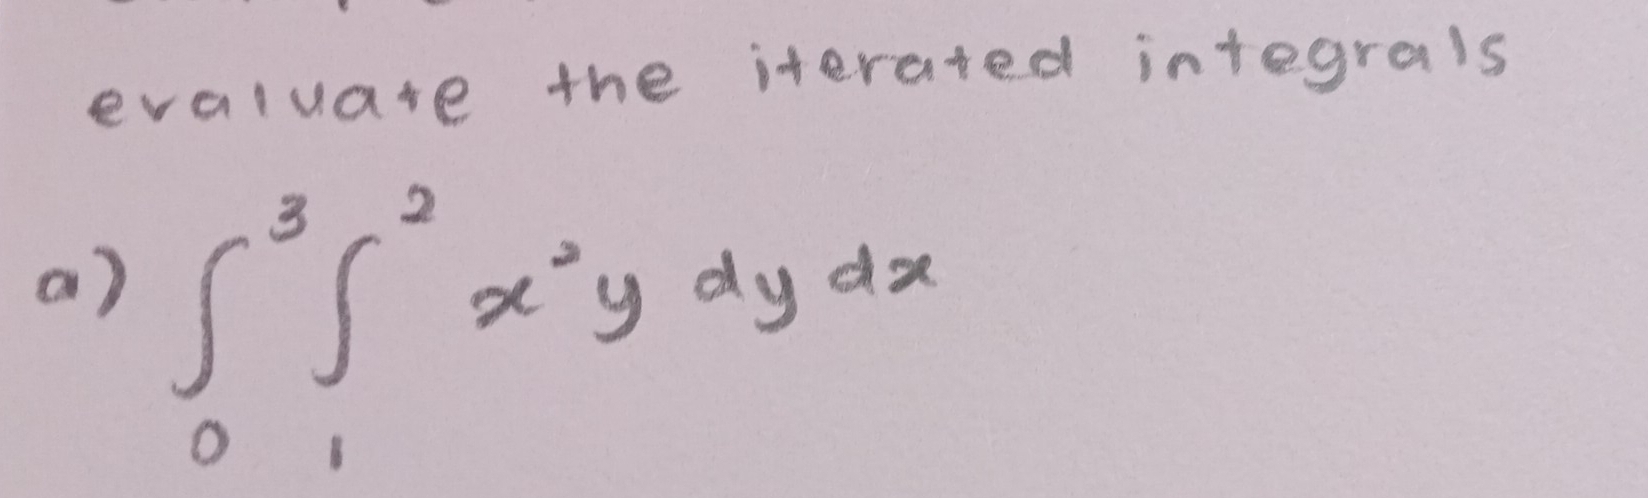 evaluate the iterated integrals
a) ∫₀³ ∫₁² x²y dy dx